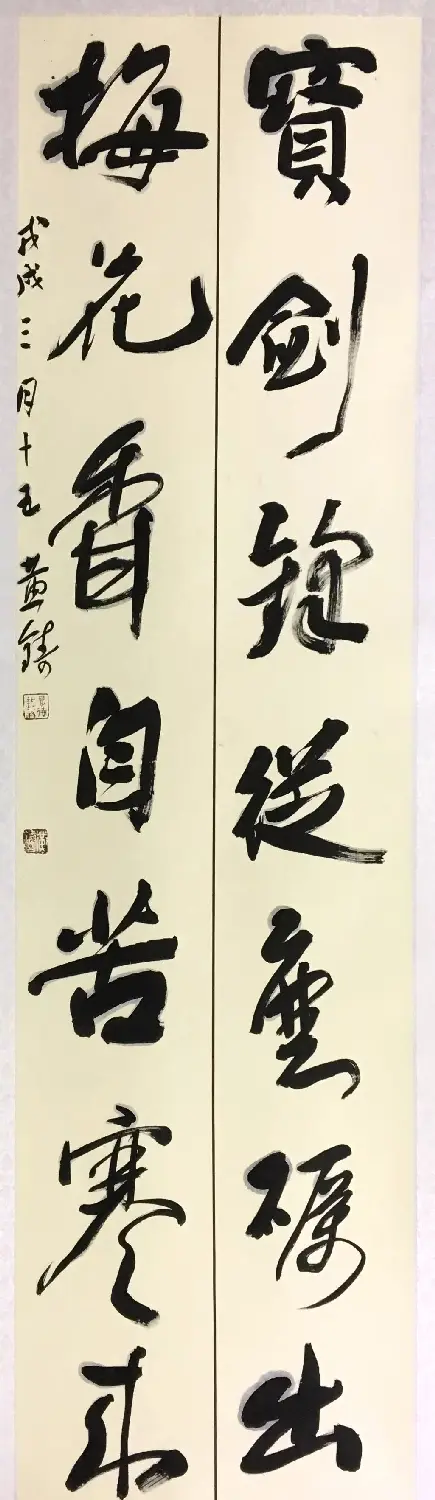 寶劍鋒從磨礪出
梅花香自苦寒來
戊戌三月十五黄鑄